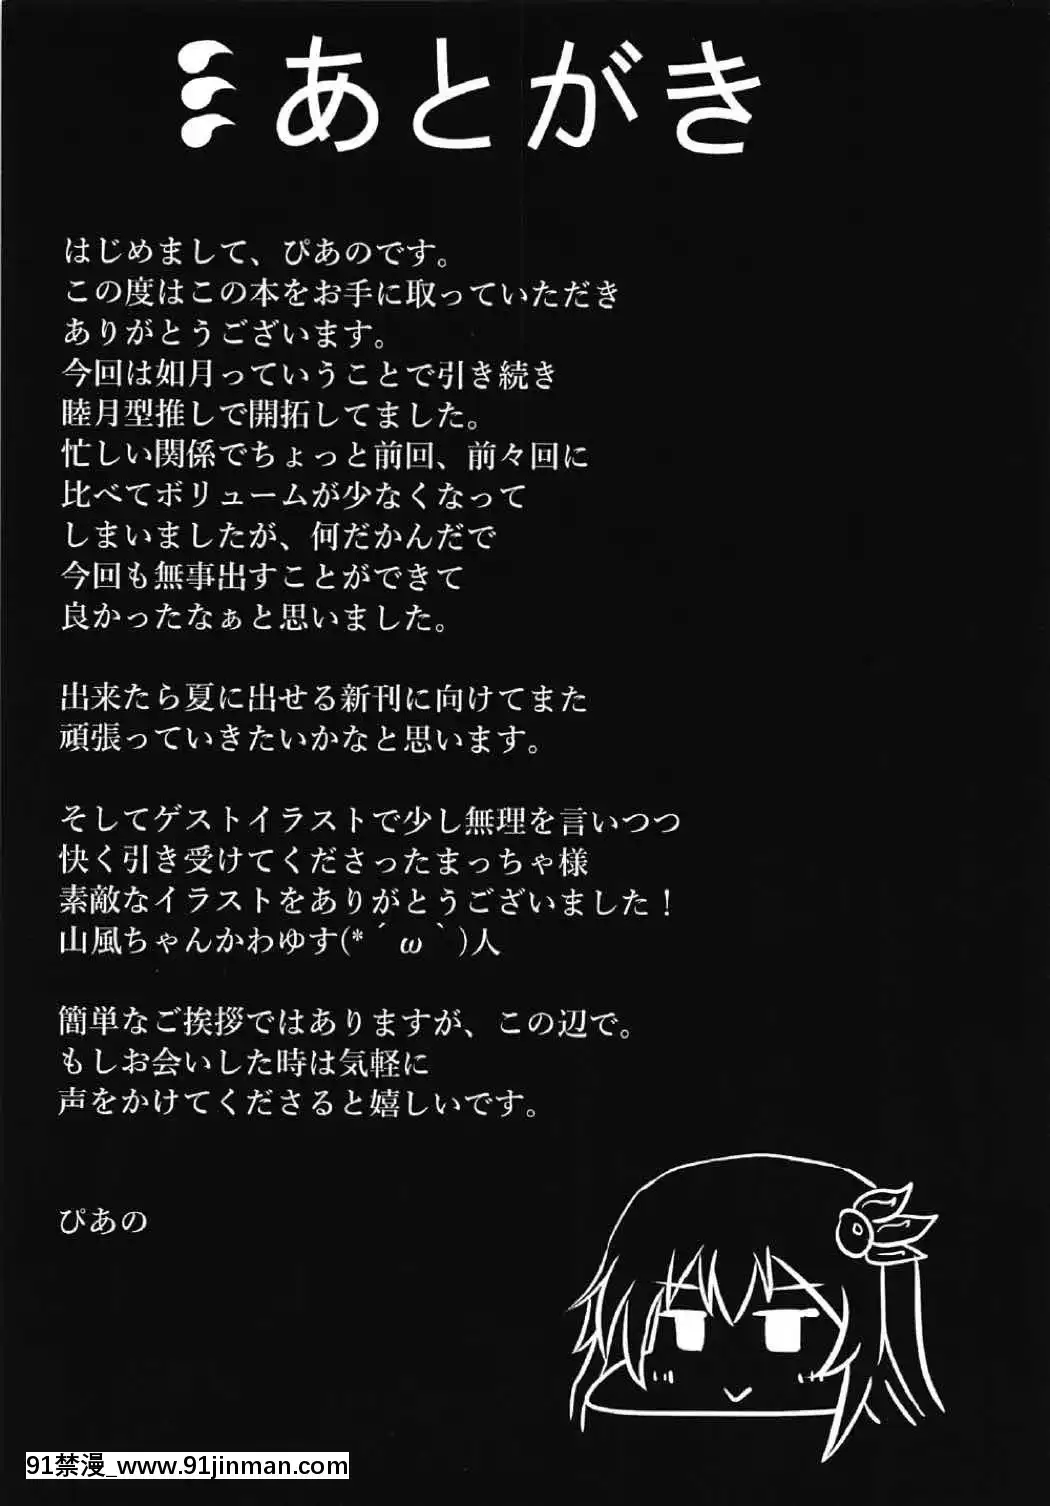 あとがき
はじめまして、ぴあのです。
この度はこの本をお手に取っていただき
ありがとうございます。
今回は如月っていうことで引き続き
睦月型推しで開拓してました。
忙しい関係でちょっと前回、前々回に
比べてボリュームが少なくなって
しまいましたが、何だかんだで
今回も無事出すことができて
良かったなぁと思いました。
出来たら夏に出せる新刊に向けてまた
頑張っていきたいかなと思います。
そしてゲストイラストで少し無理を言いつつ
快く引き受けてくださったまっちゃ様
素敵なイラストをありがとうございました！
山風ちゃんかわゆす(*´ω｀)人
簡単なご挨拶ではありますが、この辺で。
もしお会いした時は気軽に
声をかけてくださると嬉しいです。
ぴあの
91禁漫_www.91jinman.com